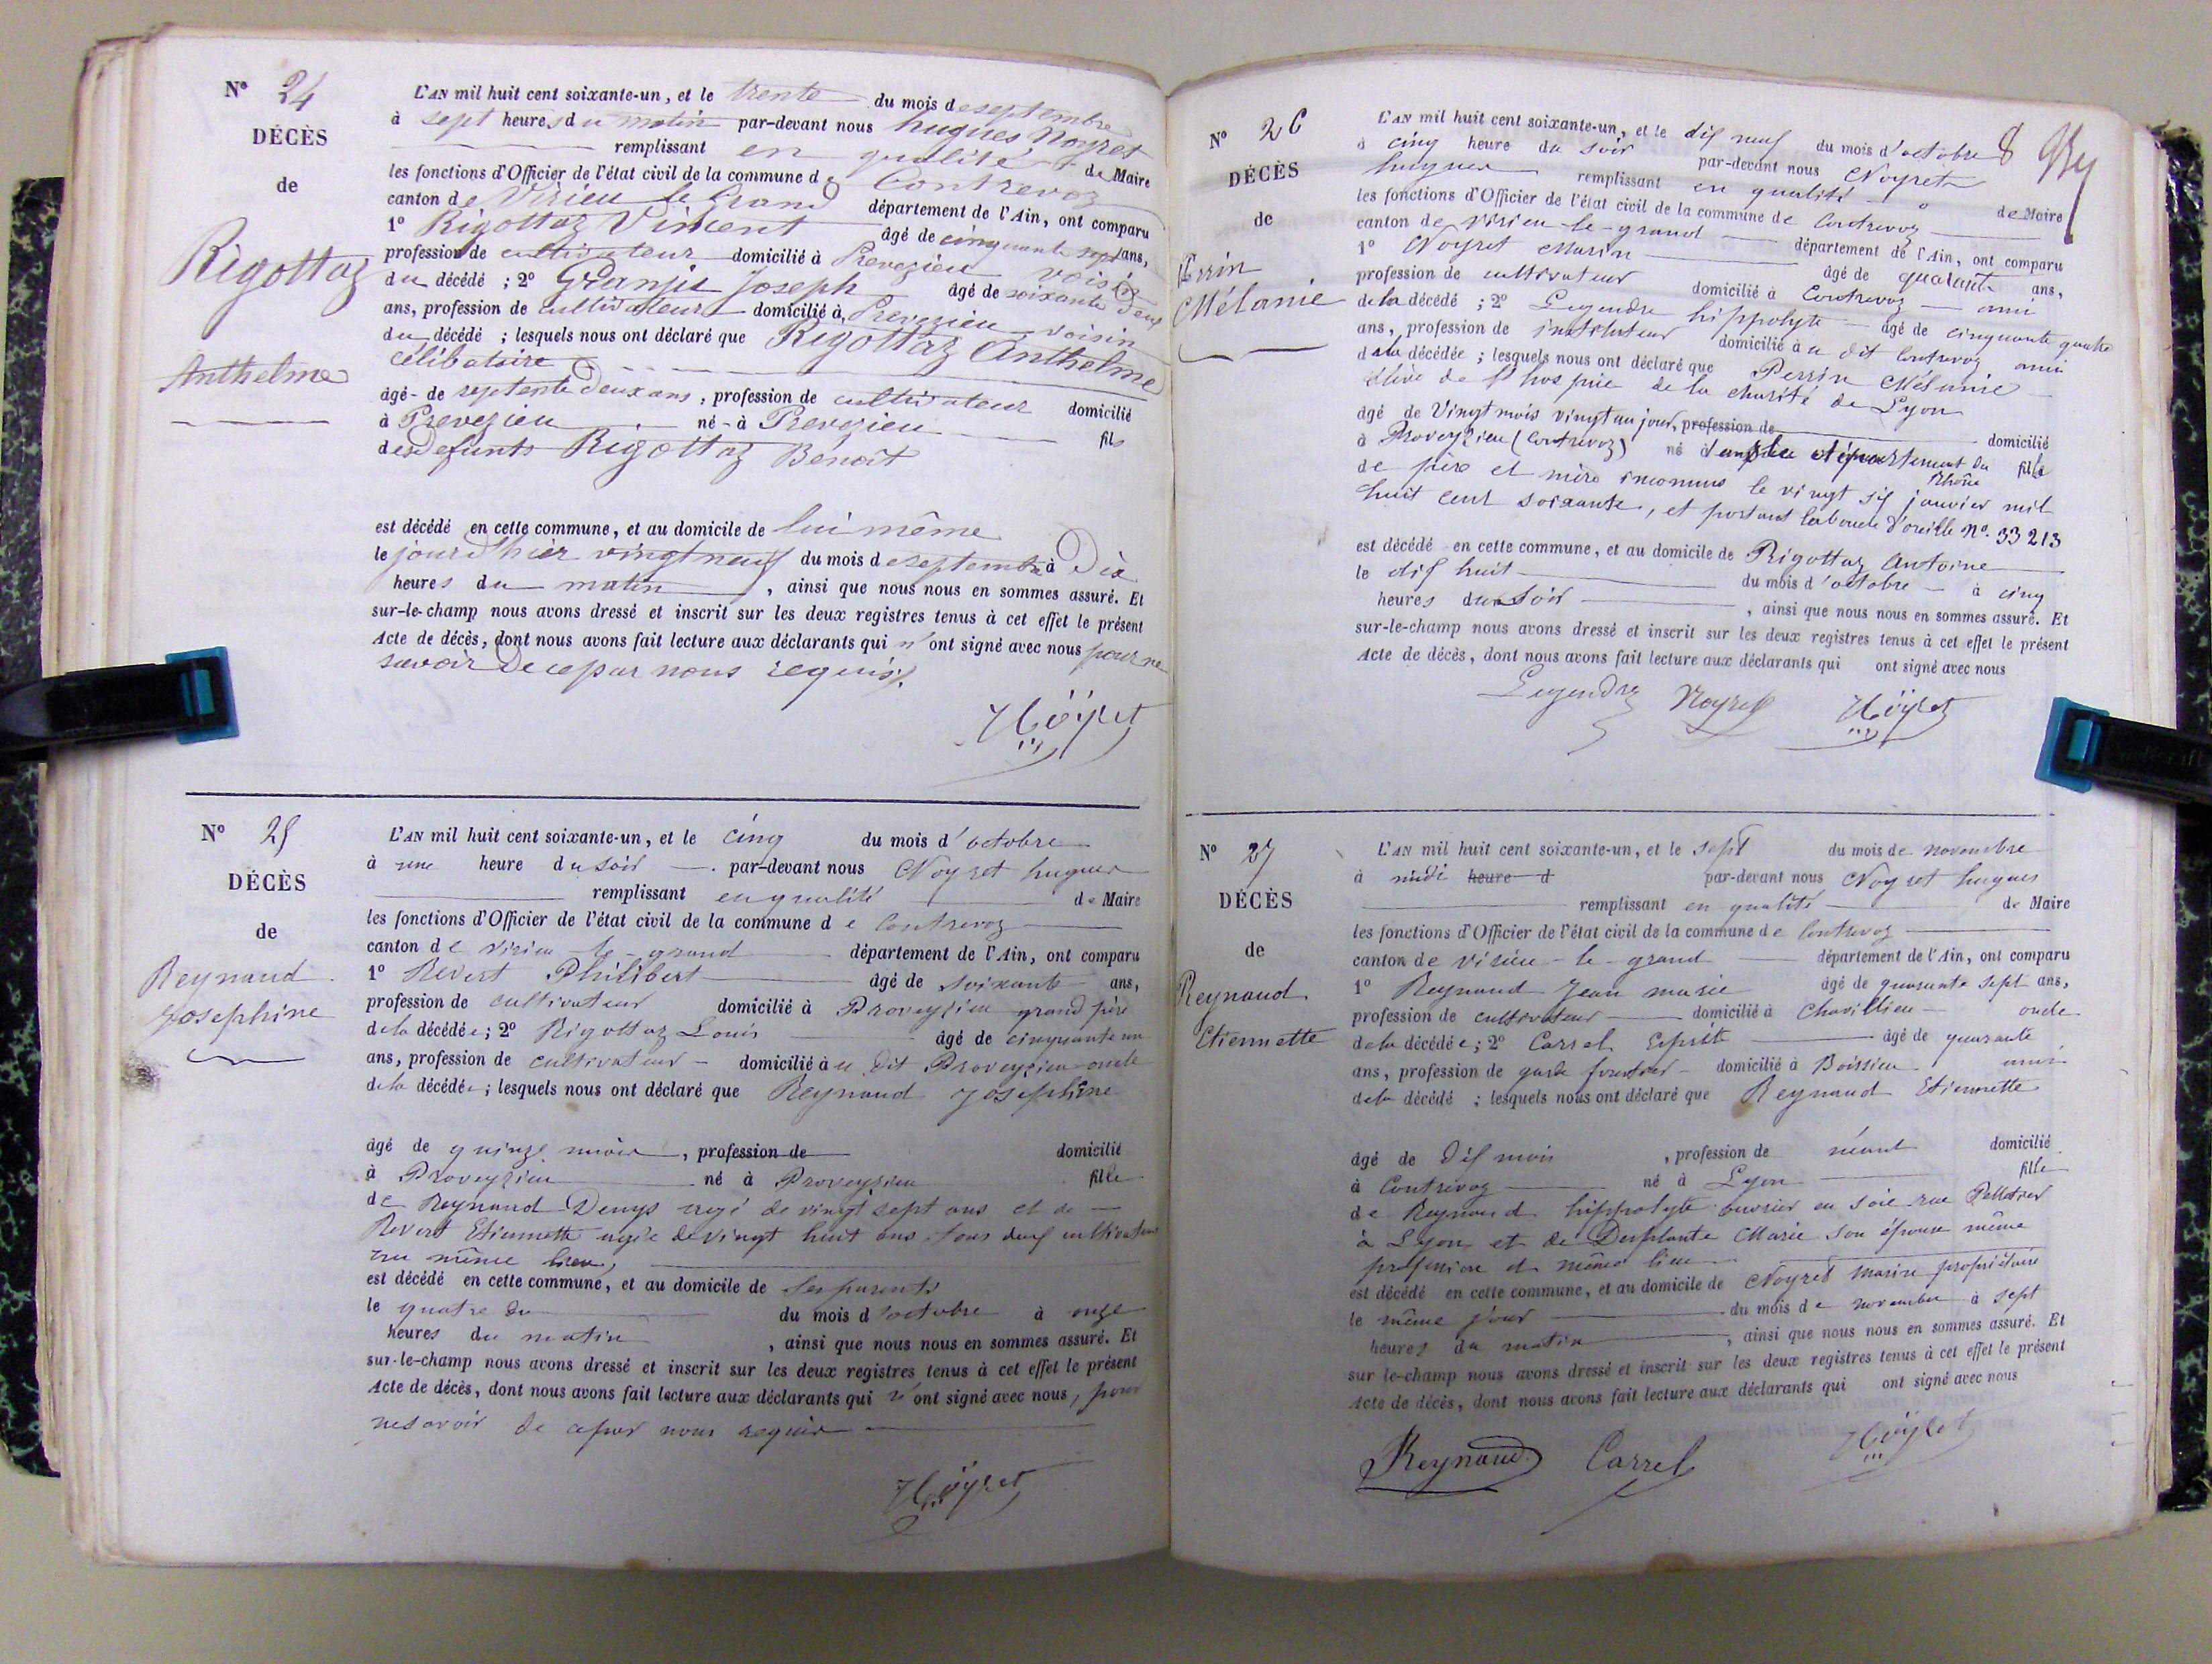 Nº 24
DÉCÈS
de
Rigottaz
Anthelme
L'AN mil huit cent soixante-un, et le trente du mois de septembre
à sept heures du matin par-devant nous hugues Noyret
remplissant en qualité de Maire
les fonctions d'Officier de l'état civil de la commune de Contrevoz
canton de Virieu le Grand département de l'Ain, ont comparu
1º Rigottaz Vincent âgé de cinquante sept ans,
profession de cultivateur domicilié à Prevezieu voisin
du décédé ; 2º Granjit Joseph âgé de soixante deux
ans, profession de cultivateur domicilié à Prevezieu voisin
du décédé ; lesquels nous ont déclaré que Rigottaz Anthelme
célibataire
âgé de septente deux ans, profession de cultivateur domicilié
à Prevezieu né à Prevezieu fils
des Defunts Rigottaz Benoit
est décédé en cette commune, et au domicile de lui même
le jour d'hier vingt neuf du mois de septembre à Dix
heures du matin, ainsi que nous nous en sommes assuré. Et
sur-le-champ nous avons dressé et inscrit sur les deux registres tenus à cet effet le présent
Acte de décès, dont nous avons fait lecture aux déclarants qui n'ont signé avec nous pour ne
savoir De ce par nous requis.
Nöyret
Nº 25
DÉCÈS
de
Reynaud
Josephine
L'AN mil huit cent soixante-un, et le cinq du mois d'octobre
à une heure du soir par-devant nous Noyret hugues
remplissant en qualité de Maire
les fonctions d'Officier de l'état civil de la commune de Contrevoz
canton de virieu le-grand département de l'Ain, ont comparu
1º Revert Philibert âgé de soixante ans,
profession de cultivateur domicilié à Proveyzieu grand père
de la décédée ; 2º Rigottaz Louis âgé de cinquante un
ans, profession de cultivateur domicilié au dit Proveyzieu oncle
de la décédée ; lesquels nous ont déclaré que Reynaud Josephine
âgé de quinze mois, profession de domicilié
à Proveyzieu né à Proveyzieu fille
de Reynaud Denys agé de vingt sept ans et de
Revert Etiennette agée de vingt huit ans tous deux cultivateurs
au même lieu,
est décédé en cette commune, et au domicile de ses parents
le quatre du du mois d'octobre à onze
heures du matin, ainsi que nous nous en sommes assuré. Et
sur-le-champ nous avons dressé et inscrit sur les deux registres tenus à cet effet le présent
Acte de décès, dont nous avons fait lecture aux déclarants qui n'ont signé avec nous, pour
ne savoir de ce par nous requis
Nöyret
8
Nº 26
DÉCÈS
de
Perrin
Mélanie
L'AN mil huit cent soixante-un, et le dix neuf du mois d'octobre
à cinq heure du soir par-devant nous Noyret
hugues remplissant en qualité de Maire
les fonctions d'Officier de l'état civil de la commune de Contrevoz
canton de virieu-le-grand département de l'Ain, ont comparu
1º Noyret Marin âgé de quarante ans,
profession de cultivateur domicilié à Contrevoz ami
de la décédé ; 2º Legendre hippolyte âgé de cinquante quatre
ans, profession de instituteur domicilié à u dit Contrevoz ami
de la décédée ; lesquels nous ont déclaré que Perrin Mélanie
élève de l'hospice de la charité de Lyon
âgé de Vingt mois vingt un jour, profession de domicilié
à Proveyzieu (Contrevoz) né dans le département du Rhône fille
de père et mère inconnus le vingt six janvier mil
huit cent soixante, et portant la boucle d'oreille nº. 33 213
est décédé en cette commune, et au domicile de Rigottaz Antoine
le dix huit du mois d'octobre à cinq
heures du soir, ainsi que nous nous en sommes assuré. Et
sur-le-champ nous avons dressé et inscrit sur les deux registres tenus à cet effet le présent
Acte de décès, dont nous avons fait lecture aux déclarants qui ont signé avec nous
Legendre Noyret Nöyret
Nº 27
DÉCÈS
de
Reynaud
Etiennette
L'AN mil huit cent soixante-un, et le sept du mois de novembre
à midi heure d par-devant nous Noyret hugues
remplissant en qualité de Maire
les fonctions d'Officier de l'état civil de la commune de Contrevoz
canton de virieu-le-grand département de l'Ain, ont comparu
1º Reynaud Jean marie âgé de quarante sept ans,
profession de cultivateur domicilié à Chavillieu oncle
de la décédée ; 2º Carrel âgé de quarante
ans, profession de garde forestier domicilié à Boissieu ami
de la décédé ; lesquels nous ont déclaré que Reynaud Etiennette
âgé de dix mois, profession de néant domicilié
à Contrevoz né à Lyon fille
de Reynaud hippolyte ouvrier en soie rue
à Lyon et de Desplante Marie son épouse même
profession et même lieu
est décédé en cette commune, et au domicile de Noyret Marin propriétaire
le même jour du mois de novembre à sept
heures du matin, ainsi que nous nous en sommes assuré. Et
sur le-champ nous avons dressé et inscrit sur les deux registres tenus à cet effet le présent
Acte de décès, dont nous avons fait lecture aux déclarants qui ont signé avec nous
Reynaud Carrel Nöyret